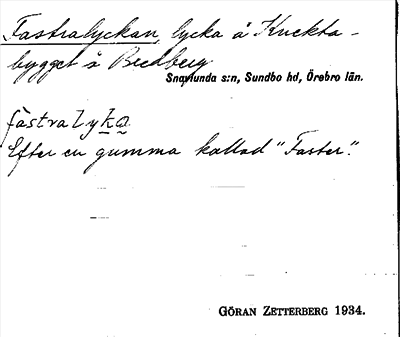 Fastralyckan, lycka å Knekta-
bygget å Bredberg
Snavlunda s:n, Sundbo hd, Örebro län.
fàstralyka
Efter en gumma kallad "Faster".
GÖRAN ZETTERBERG 1934.